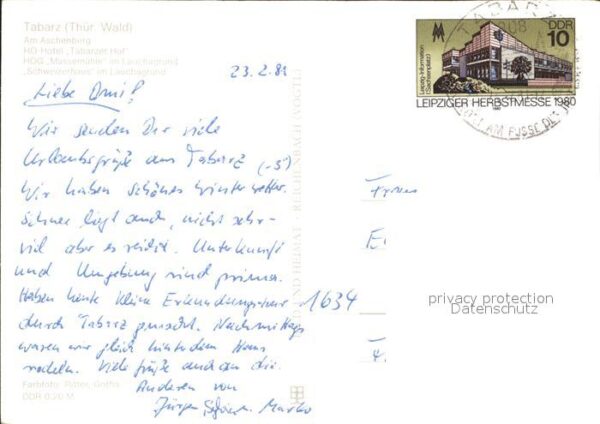 Tabarz (Thür. Wald)
Am Aschenberg
HO-Hotel „Tabarzer Hof"
HOG „Massemühle" im Lauchagrund
„Schweizerhaus" im Lauchagrund
23.2.83
Liebe Omi!
Wir senden Dir viele
Urlaubsgrüße aus Tabarz (-5°)
Wir haben schönes Winterwetter.
Schnee liegt auch, nicht sehr
viel aber es reicht. Unterkunft
und Umgebung sind prima.
Haben heute kleine Erkundungstour
durch Tabarz gemacht. Nachmittags
waren wir gleich hinter dem Haus
rodeln. Viele Grüße auch an die
Anderen von
Jürgen, Marko
Farbfoto: Ritter, Gotha
DDR 0,20 M
BILD UND HEIMAT · REICHENBACH (VOGTL)
TABARZ
AM FUSSE DES
Leipzig-Information
(Sachsenplatz)
DDR
10
LEIPZIGER HERBSTMESSE 1980
Frau
1634
privacy protection
Datenschutz